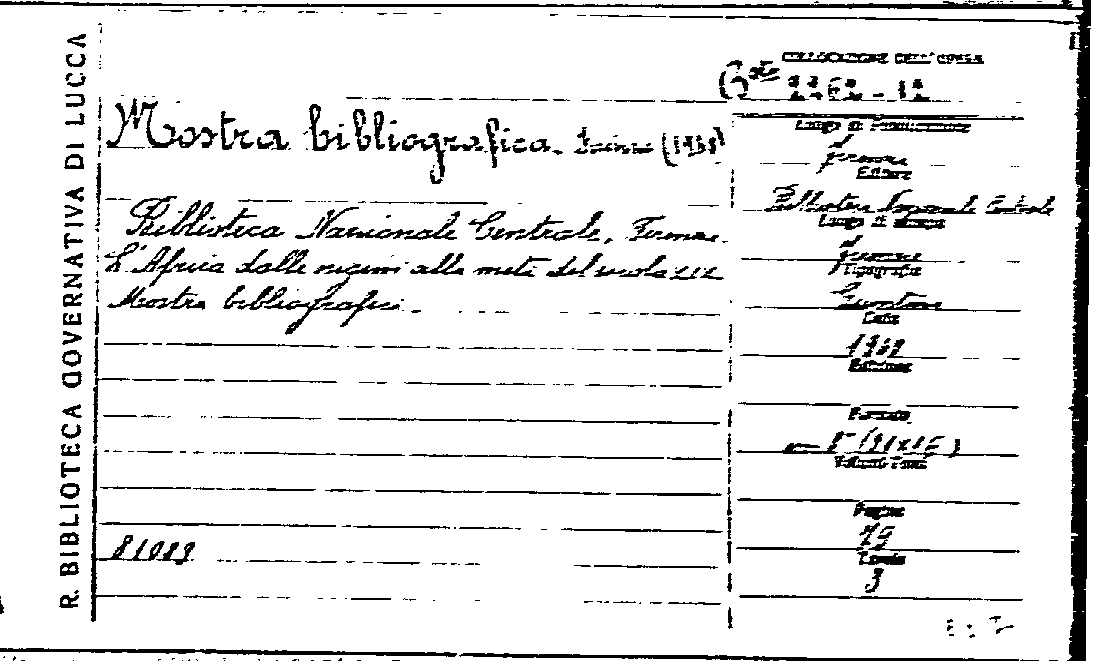 R. BIBLIOTECA GOVERNATIVA DI LUCCA
COLLOCAZIONE DELL'OPERA
Mostra bibliografica. Firenze
Biblioteca Nazionale Centrale, Firenze.
L'Africa dalle origini alla metà del secolo XIX
Mostra bibliografica.
81089
Luogo di Pubblicazione
Firenze
Editore
Biblioteca Nazionale Centrale
Luogo di stampa
Firenze
Tipografia
Giuntina
Data
Edizione
Formato
Volumi-Tomi
Pagine
75
Tavole
3